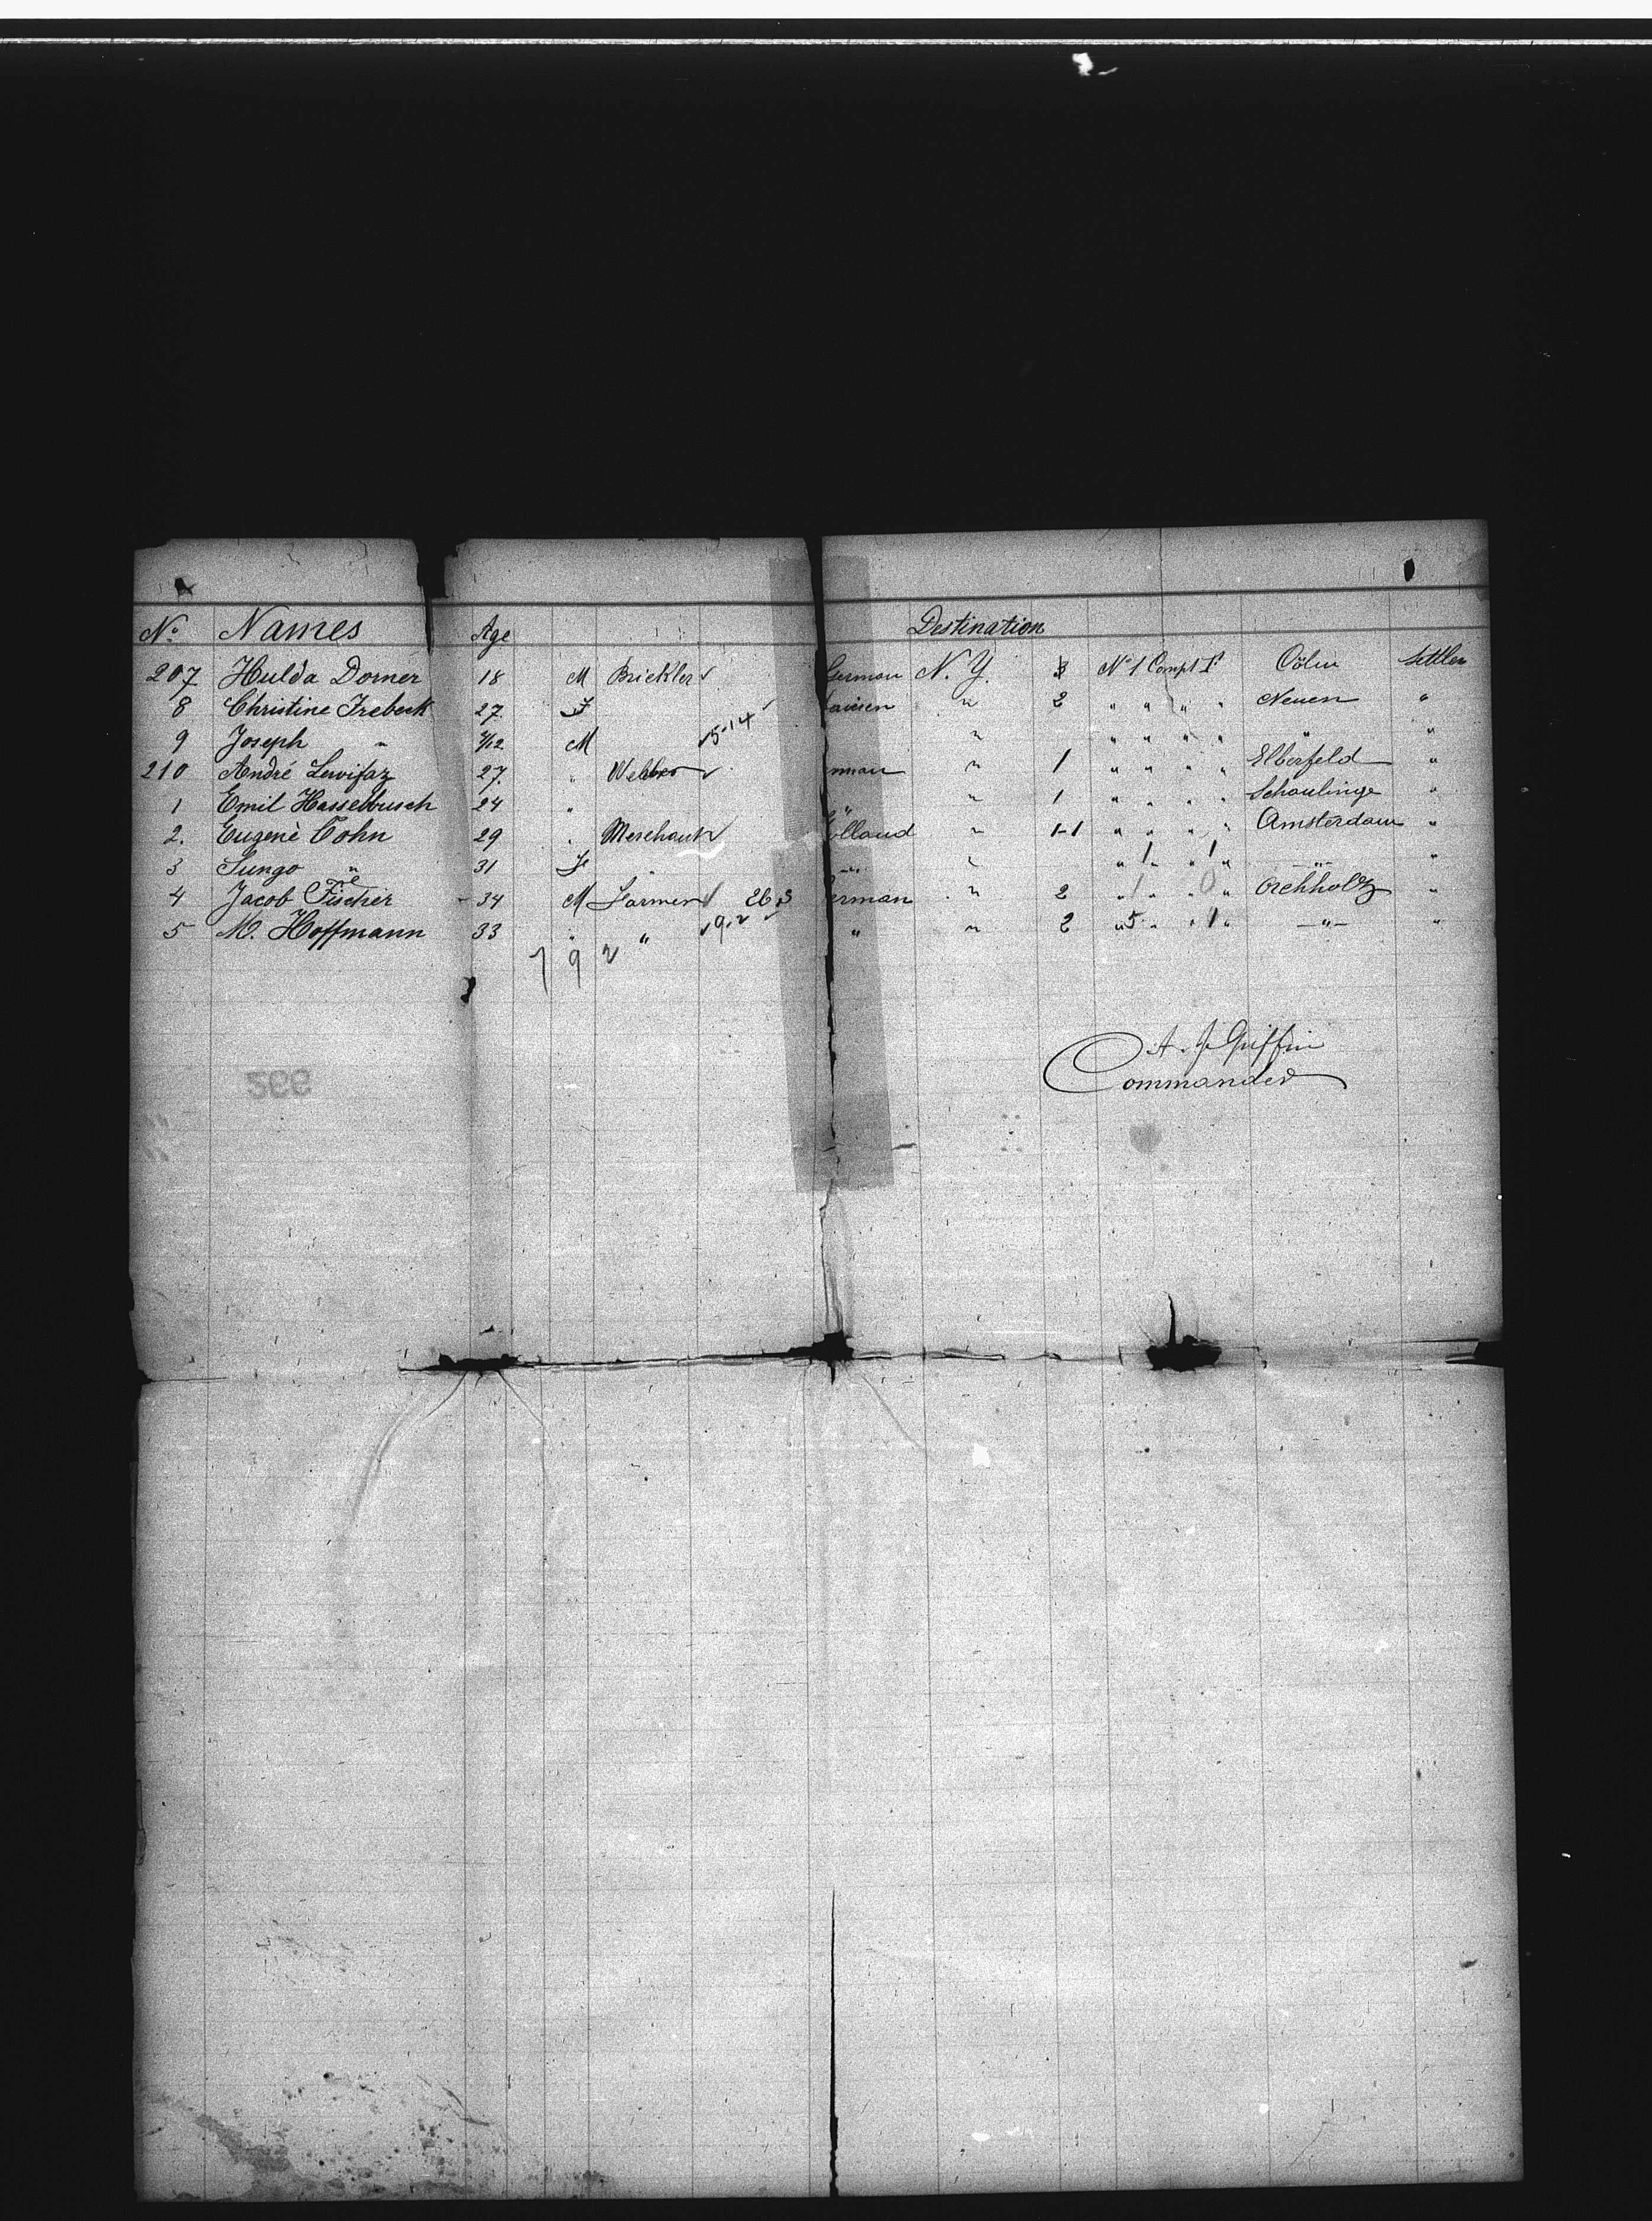 No. Names Age Destination
207 Hulda Dorner 18 M Brickler ✓ German N. Y. No 1 Compt 1st Cöln Settler
8 Christine Irebeck 27 F " 2 " " " " Neuen "
9 Joseph " 4/12 M 5-14 " " " " " " "
210 André 27 " Webber ✓ rman " 1 " " " " Elberfeld "
1 Emil Hasselbusch 24 " " " 1 " " " " Schoulinge "
2. Eugenè Cohn 29 " Merchant olland " 1-1 " " " " Amsterdam "
3 Sungo " 31 Fe " " " 1 " 1 " -"- "
4 Jacob Fischer 34 M Farmer 26 3 erman " 2 " " " " "
5 M. Hoffmann 33 " " 9-2 " " 2 " 5 " " 1 " -"- "
1 9 2
A. J. Griffin
Commander
266